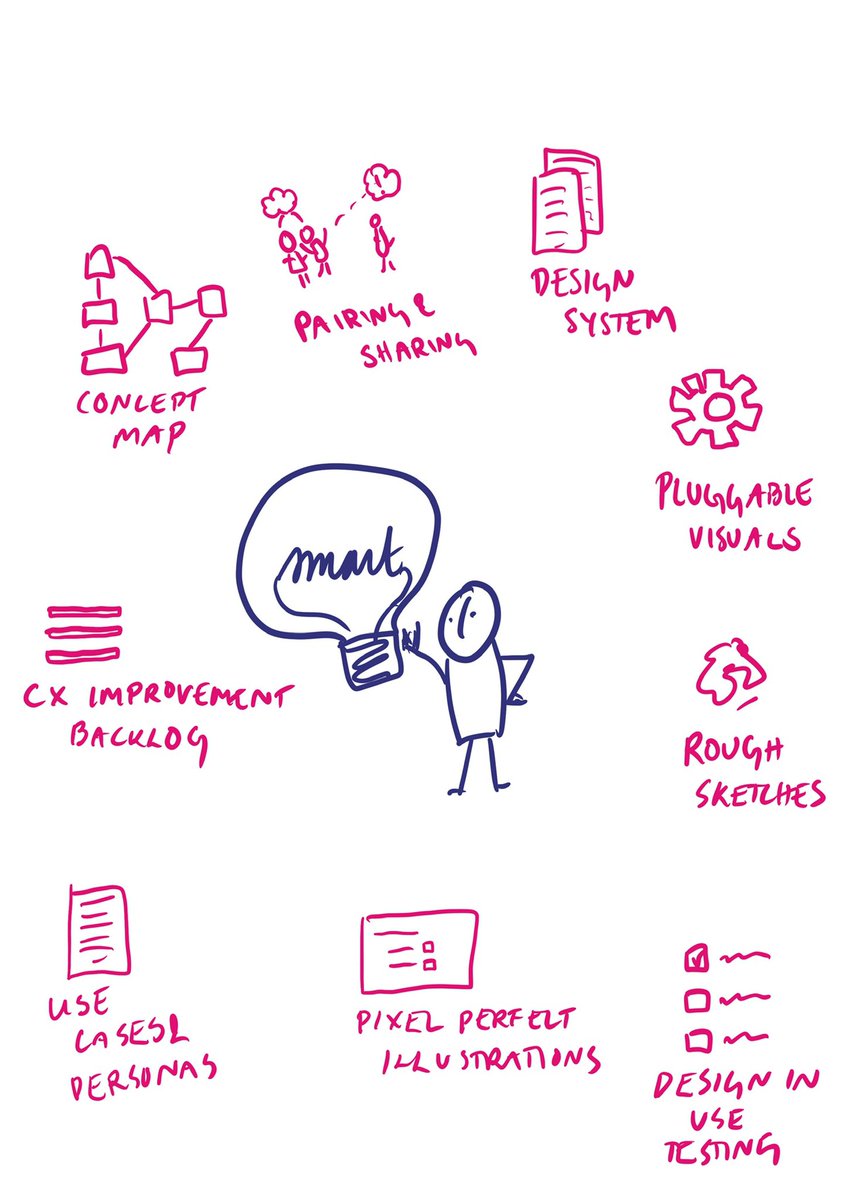 PAIRING &
SHARING
DESIGN
SYSTEM
CONCEPT
MAP
PLUGGABLE
VISUALS
smart
CX IMPROVEMENT
BACKLOG
ROUGH
SKETCHES
USE
CASES &
PERSONAS
PIXEL PERFECT
ILLUSTRATIONS
DESIGN IN
USE
TESTING